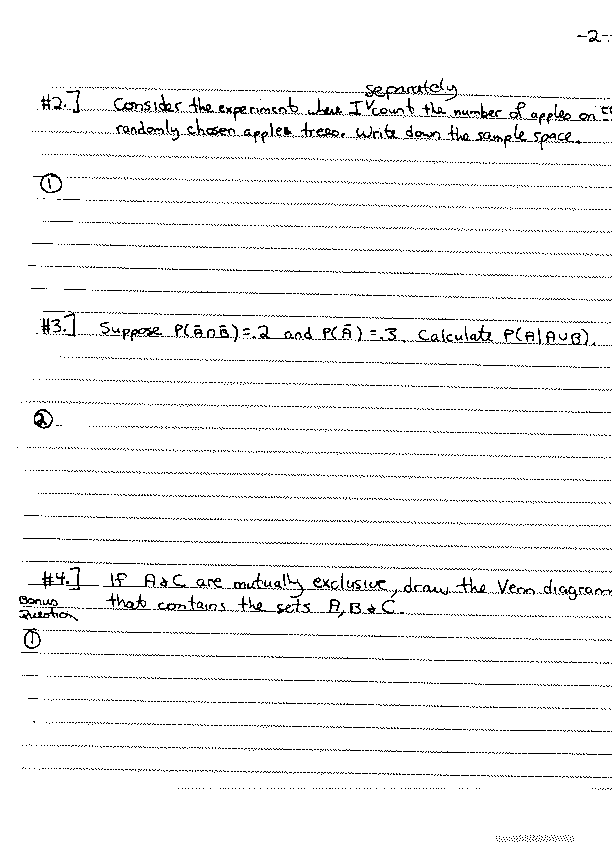 -2-
separately
#2.] Consider the experiment where I count the number of apples on
randomly chosen apples trees. Write down the sample space.
①
#3.] Suppose P(Ā∩B̄)=.2 and P(Ā)=.3. Calculate P(A|A∪B).
②
#4.] If A & C are mutually exclusive, draw the Venn diagram
Bonus that contains the sets A, B & C.
Question
①